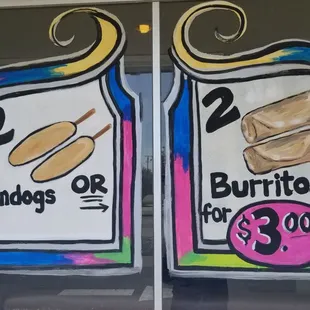 2
ndogs OR
2
Burrito
for $3.00